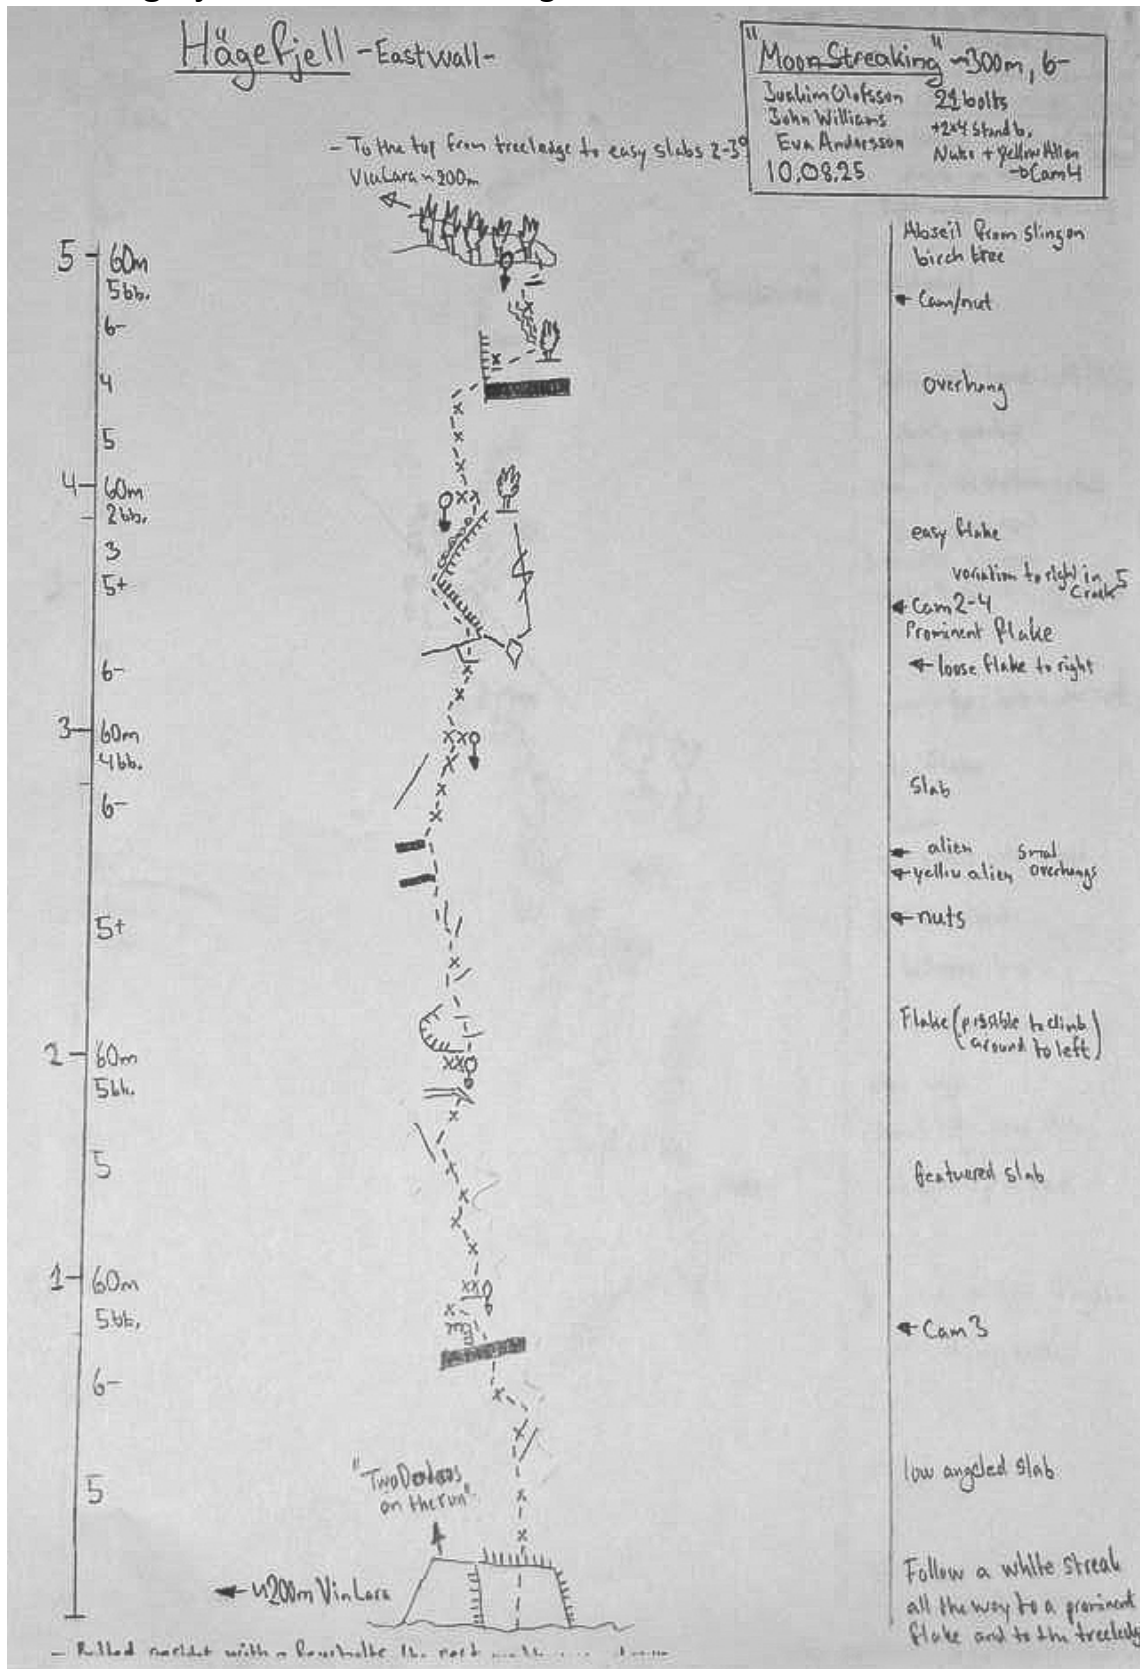 Hägefjell -Eastwall-
"Moon Streaking" ~300m, 6-
Joakim Olofsson
John Williams
Eva Andersson
10.08.25
21 bolts
+2x4 stand b.
Nuts + yellow Alien
→ Cam 4
- To the top from treeledge to easy slabs 2-3°
Via Lara ~ 200m
5 60m
5bb.
6-
4
5
4 60m
2bb.
3
5+
6-
3 60m
4bb.
6-
5+
2 60m
5bb.
5
1 60m
5bb.
6-
5
Abseil from sling on
birch tree
Cam/nut
overhang
easy flake
variation to right in
Crack 5
Cam 2-4
Prominent flake
loose flake to right
Slab
alien
yellow alien
Smal
overhangs
nuts
Flake (possible to climb
around to left)
featuered slab
Cam 3
low angeled slab
Follow a white streak
all the way to a prominent
flake and to the treeledge
"Two
on the run"
~200m Via Lara
with